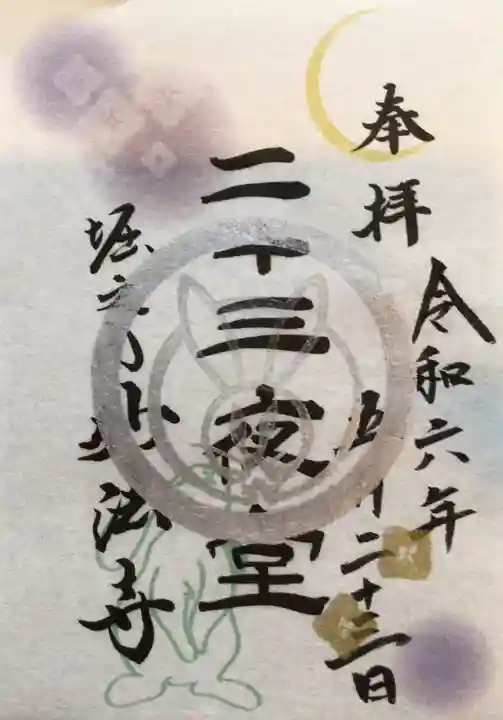 奉拝
令和六年
五月二十三日
二十三夜堂
堀之内妙法寺